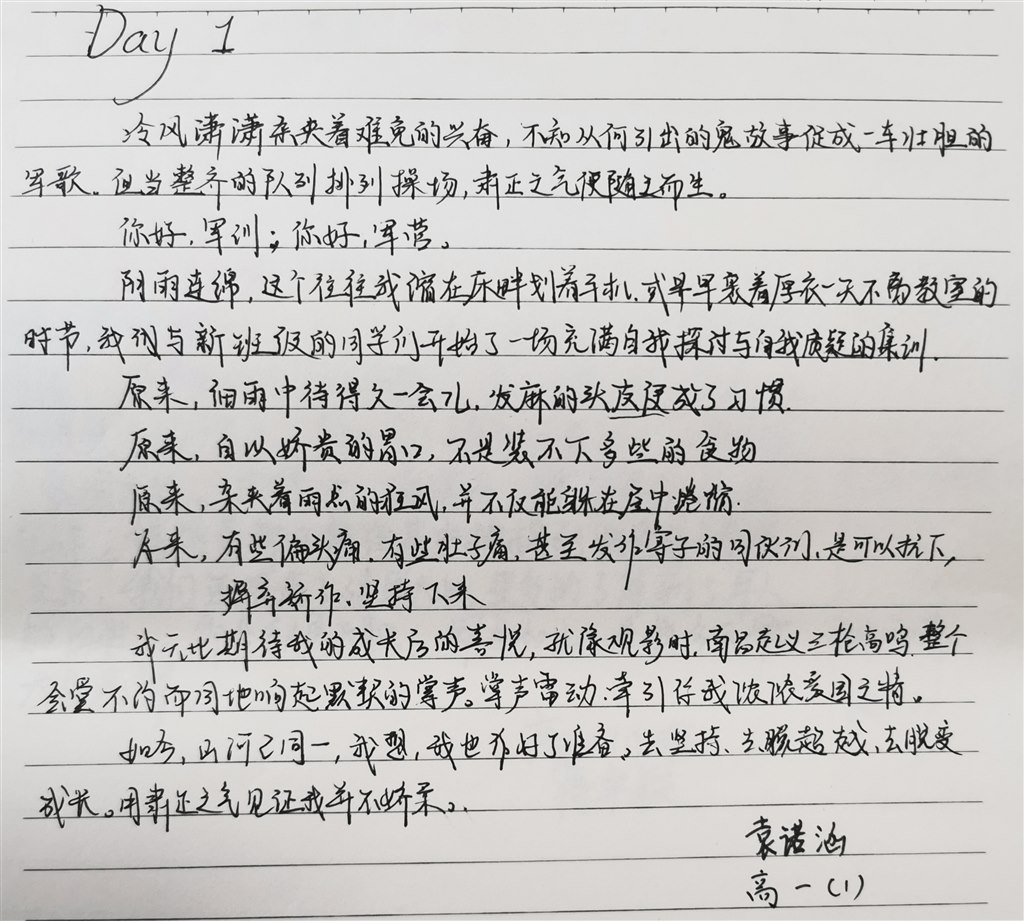 Day 1
冷风潇潇杂夹着难免的兴奋，不知从何引出的鬼故事促成一车壮胆的
军歌。但当整齐的队列排列操场，肃正之气便随之而生。
你好，军训；你好，军营。
阴雨连绵，这个往往我缩在床畔划着手机，或早早裹着厚衣一天不离教室的
时节，我们与新班级的同学们开始了一场充满自我探讨与自我质疑的集训.
原来，细雨中待得久一会儿，发麻的头皮便成了习惯.
原来，自以娇贵的胃口，不是装不下多些的食物
原来，杂夹着雨点的狂风，并不仅能躲在屋中
原来，有些偏头痛，有些肚子痛，甚至发作等子的同伙们，是可以抗下，
摒弃娇作、坚持下来
我无比期待我的成长后的喜悦，就像观影时，南昌起义三枪高鸣，整个
会堂不约而同地响起默契的掌声。掌声雷动，牵引住我浓浓爱国之情。
如今，山河已同一，我想，我也作好了准备。去坚持、去超越、去脱变
成长。用肃正之气见证我并不娇柔。
袁诺涵
高一(1)